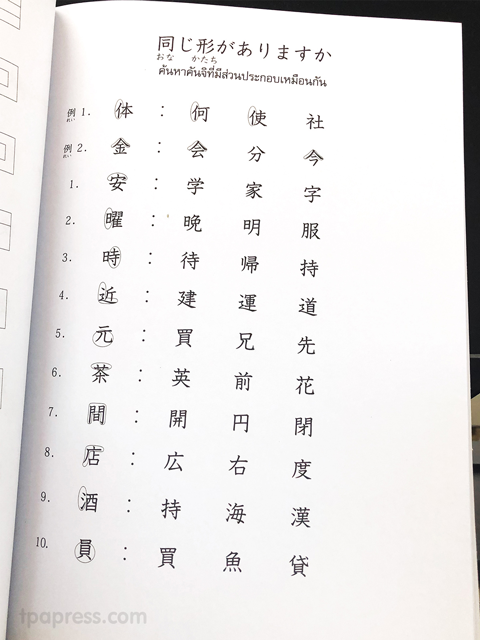 同じ形がありますか
おな かたち
ค้นหาคันจิที่มีส่วนประกอบเหมือนกัน
例 1. 体 : 何 使 社
れい
例 2. 金 : 会 分 今
れい
1. 安 : 学 家 字
2. 曜 : 晩 明 服
3. 時 : 待 帰 持
4. 近 : 建 運 道
5. 元 : 買 兄 先
6. 茶 : 英 前 花
7. 間 : 開 円 閉
8. 店 : 広 右 度
9. 酒 : 持 海 漢
10. 員 : 買 魚 貸
tpapress.com